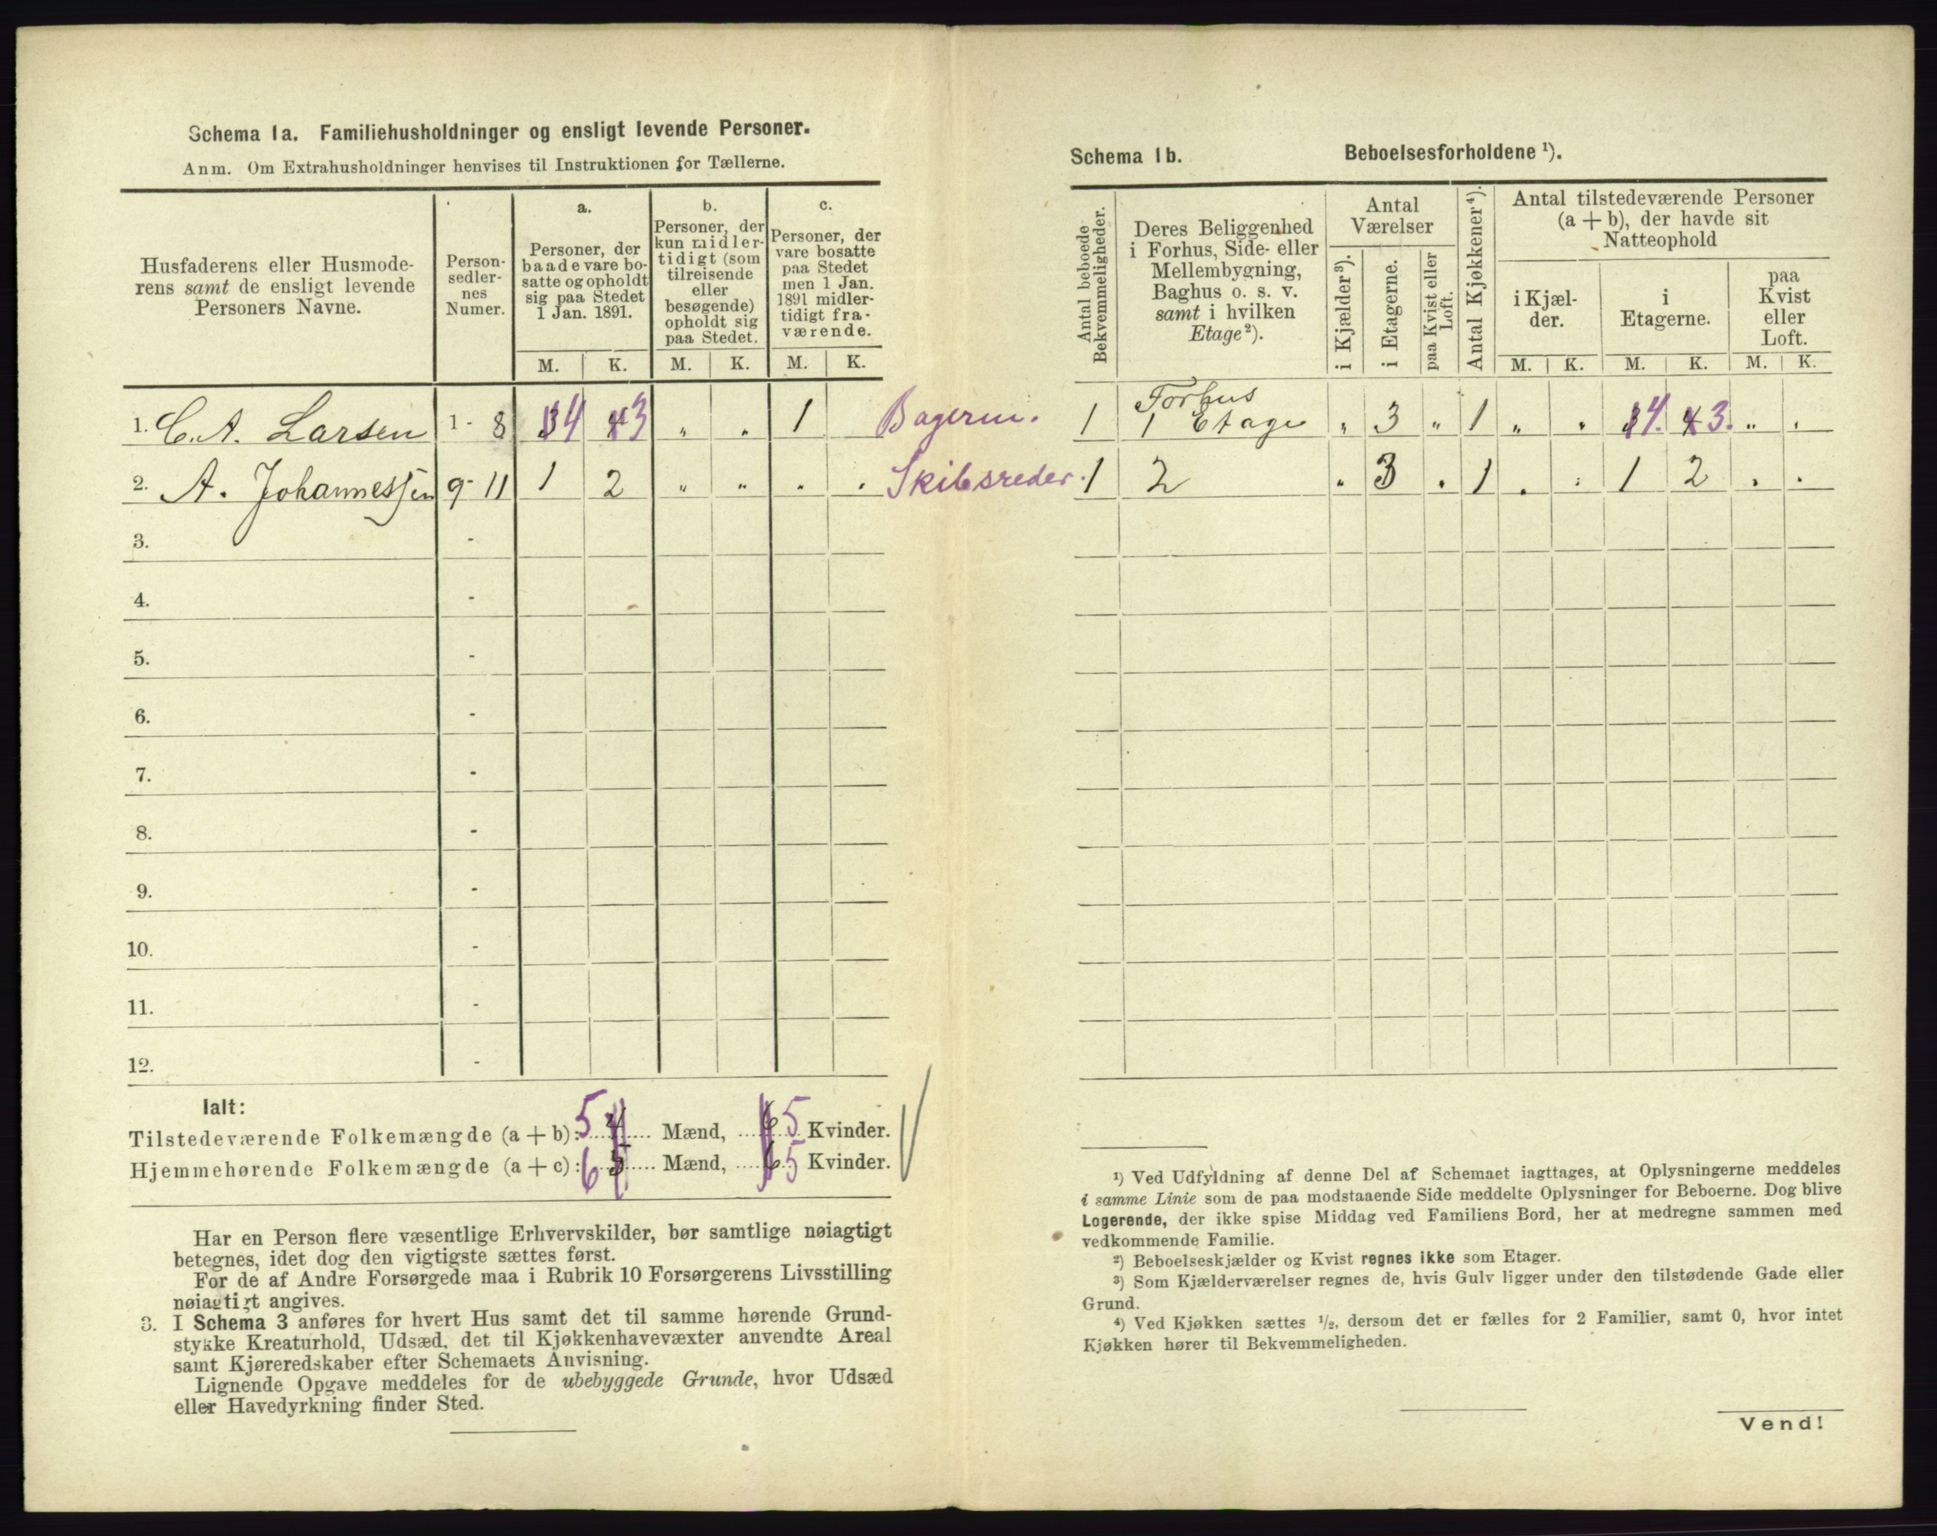 Schema 1a. Familiehusholdninger og ensligt levende Personer.
Anm. Om Extrahusholdninger henvises til Instruktionen for Tællerne.
Husfaderens eller Husmode-
rens samt de ensligt levende
Personers Navne.
Person-
sedler-
nes
Numer.
a.
Personer, der
baade vare bo-
satte og opholdt
sig paa Stedet
1 Jan. 1891.
b.
Personer, der
kun midler-
tidigt (som
tilreisende
eller
besøgende)
opholdt sig
paa Stedet.
c.
Personer, der
vare bosatte
paa Stedet
men 1 Jan.
1891 midler-
tidigt fra-
værende.
M. K. M. K. M. K.
1. C. A. Larsen 1 - 8 34 43 " . 1 Bagerm.
2. A. Johannessen 9 - 11 1 2 " " . . Skibsreder.
3. -
4. -
5. -
6. -
7. -
8. -
9. -
10. -
11. -
12. -
Ialt:
Tilstedeværende Folkemængde (a + b): 5 4 Mænd, 6 5 Kvinder.
Hjemmehørende Folkemængde (a + c): 6 5 Mænd, 6 5 Kvinder.
Har en Person flere væsentlige Erhvervskilder, bør samtlige nøiagtigt
betegnes, idet dog den vigtigste sættes først.
For de af Andre Forsørgede maa i Rubrik 10 Forsørgerens Livsstilling
nøiagtigt angives.
3. I Schema 3 anføres for hvert Hus samt det til samme hørende Grund-
stykke Kreaturhold, Udsæd, det til Kjøkkenhavevæxter anvendte Areal
samt Kjøreredskaber efter Schemaets Anvisning.
Lignende Opgave meddeles for de ubebyggede Grunde, hvor Udsæd
eller Havedyrkning finder Sted.
Schema 1b. Beboelsesforholdene 1).
Antal beboede
Bekvemmeligheder.
Deres Beliggenhed
i Forhus, Side- eller
Mellembygning,
Baghus o. s. v.
samt i hvilken
Etage 2).
Antal
Værelser
i Kjælder 3).
i Etagerne.
paa Kvist eller
Loft.
Antal Kjøkkener 4).
Antal tilstedeværende Personer
(a + b), der havde sit
Natteophold
i Kjæl-
der.
i
Etagerne.
paa
Kvist
eller
Loft.
M. K. M. K. M. K.
1 Forhus
1 Etage " 3 " 1 " . 34. 43. " .
1 2 . 3 . 1 . . 1 2 . .
1) Ved Udfyldning af denne Del af Schemaet iagttages, at Oplysningerne meddeles
i samme Linie som de paa modstaaende Side meddelte Oplysninger for Beboerne. Dog blive
Logerende, der ikke spise Middag ved Familiens Bord, her at medregne sammen med
vedkommende Familie.
2) Beboelseskjælder og Kvist regnes ikke som Etager.
3) Som Kjælderværelser regnes de, hvis Gulv ligger under den tilstødende Gade eller
Grund.
4) Ved Kjøkken sættes 1/2, dersom det er fælles for 2 Familier, samt 0, hvor intet
Kjøkken hører til Bekvemmeligheden.
Vend!